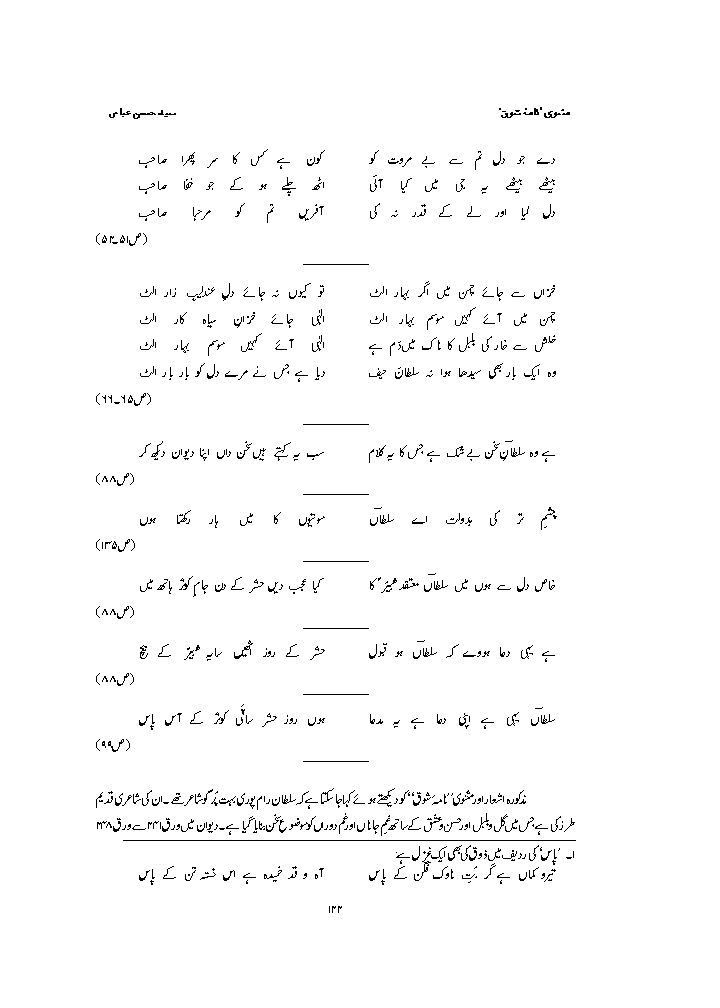 مثنوی 'نامۂ شوق' سید حسن عباس
دے جو دل تم سے بے مروت کو کون ہے کس کا سر پھرا صاحب
بیٹھے بیٹھے یہ جی میں کیا آئی اٹھ چلے ہو کے جو خفا صاحب
دل لیا اور لے کے قدر نہ کی آفریں تم کو مرحبا صاحب
(ص۵۱۔۵۲)
خزاں سے جائے چمن میں اگر بہار الٹ تو کیوں نہ جائے دلِ عندلیب زار الٹ
چمن میں آئے کہیں موسم بہار الٹ الٰہی جائے خزانِ سیاہ کار الٹ
خلش سے خار کی بلبل کا ناک میں دَم ہے الٰہی آئے کہیں موسم بہار الٹ
وہ ایک بار بھی سیدھا ہوا نہ سلطانؔ حیف دیا ہے جس نے مرے دل کو بار بار الٹ
(ص۶۵۔۶۶)
ہے وہ سلطانؔ سخن بے شک ہے جس کا یہ کلام سب یہ کہتے ہیں سخن داں اپنا دیوان دیکھ کر
(ص۸۸)
چشمِ تر کی بدولت اے سلطاںؔ موتیوں کا میں ہار رکھتا ہوں
(ص۱۳۵)
خاص دل سے ہوں میں سلطاںؔ معتقد شبیرؑ کا کیا عجب دیں حشر کے دن جامِ کوثر ہاتھ میں
(ص۸۸)
ہے یہی دعا ہووے کہ سلطاںؔ ہو قبول حشر کے روز اٹھیں سایہ شبیرؑ کے بیچ
(ص۸۸)
سلطاںؔ یہی ہے اپنی دعا ہے یہ مدعا ہوں روز حشر ساقیٔ کوثر کے آس پاس
(ص۹۹)
مذکورہ اشعار اور مثنوی ''نامۂ شوق'' کو دیکھتے ہوئے کہا جا سکتا ہے کہ سلطان رام پوری بہت پُرگو شاعر تھے۔ ان کی شاعری قدیم
طرز کی ہے جس میں گل و بلبل اور حسن و عشق کے ساتھ غمِ جاناں اور غمِ دوراں کو موضوعِ سخن بنایا گیا ہے۔ دیوان میں ورق ۲۴۱ سے ورق ۲۴۸
۱۔ 'پاس' کی ردیف میں ذوق کی بھی ایک غزل ہے:
تیر و کماں ہے گر بُتِ ناوک فگن کے پاس آہ و قد خمیدہ ہے اس خستہ تن کے پاس
۱۴۴